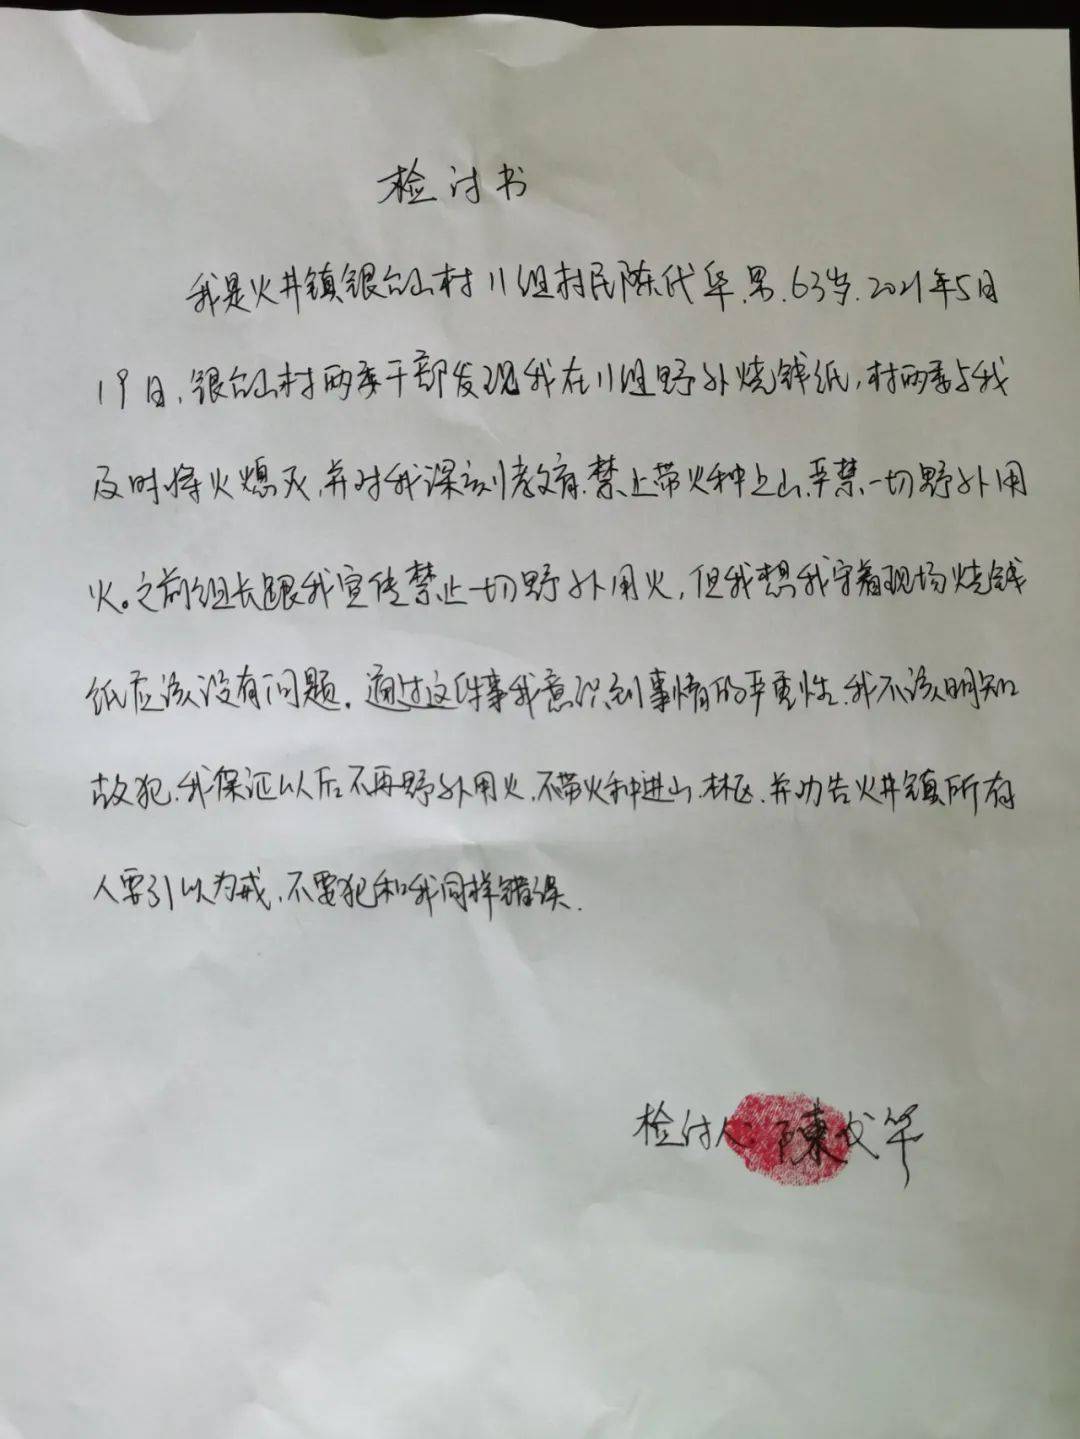 检讨书
我是火井镇银台山村11组村民陈代华.男.63岁.2021年5月
19日,银台山村两委干部发现我在11组野外烧钱纸,村两委与我
及时将火熄灭,并对我深刻教育.禁止带火种上山.严禁一切野外用
火。之前组长跟我宣传禁止一切野外用火,但我想我守着现场烧钱
纸应该没有问题。通过这件事我意识到事情的严重性.我不该明知
故犯.我保证以后不再野外用火.不带火种进山.林区.并劝告火井镇所有
人要引以为戒.不要犯和我同样错误.
检讨人:陳代华